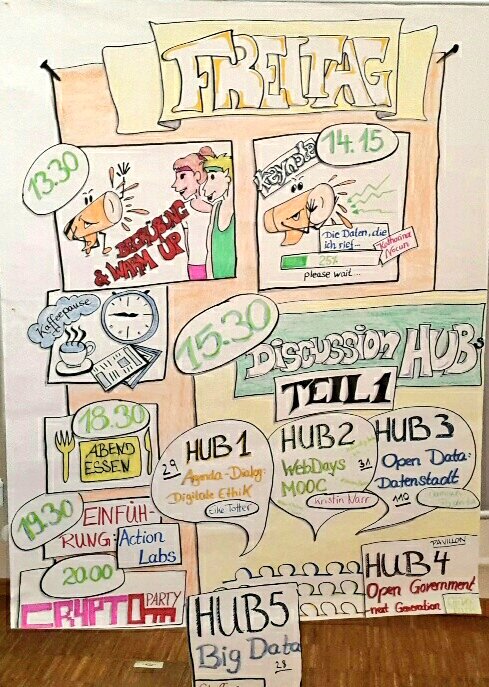 FREITAG
13.30
BEGRÜßUNG
& WARM UP
14.15
Keynote
Die Daten, die
ich rief...
Katharina
Nocun
25%
please wait...
Kaffeepause
15.30
DISCUSSION HUBs
TEIL 1
18.30
ABEND
ESSEN
HUB 1
29
Agenda-Dialog:
Digitale Ethik
HUB 2
WebDays
31
MOOC
Kristin Narr
HUB 3
Open Data:
Datenstadt
110
19.30
EINFÜH-
RUNG:
Action
Labs
20.00
CRYPTO PARTY
PAVILLON
HUB 4
Open Government
next Generation
HUB5
Big Data
28